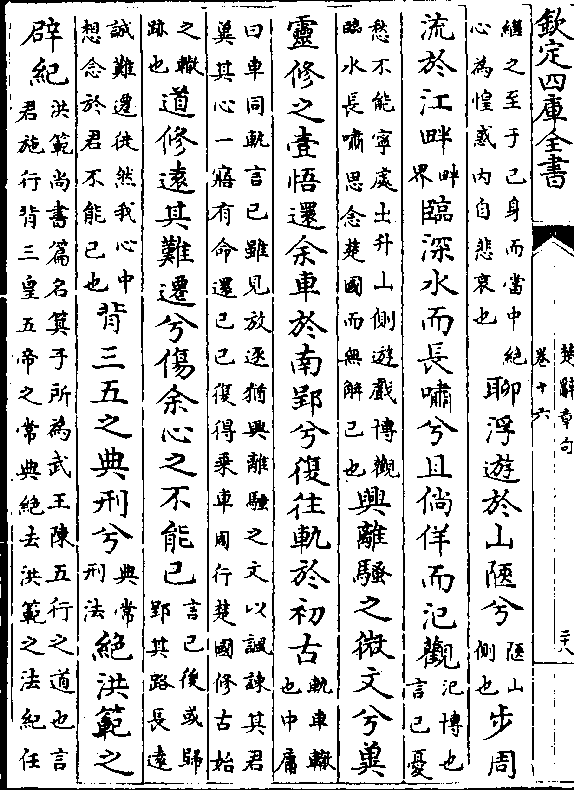 欽定四庫全書
楚辭章句
卷十六
繼之至于己身而當中絕
心為惶惑內自悲哀也
聊浮遊於山陿兮
陿山
側也
步周
流於江畔
畔
界
臨深水而長嘯兮且倘佯而氾觀
氾博也
言己憂
愁不能寧處出升山側遊戲博觀
臨水長嘯思念楚國而無解已也
興離騷之微文兮冀
靈修之壹悟還余車於南郢兮復往軌於初古
軌車轍
也中庸
曰車同軌言已雖見放逐猶興離騷之文以諷諫其君
冀其心一寤有命還己已復得乘車周行楚國修古始
之轍
跡也
道修遠其難遷兮傷余心之不能已
言已後或歸
郢其路長遠
誠難遷徙然我心中
想念於君不能已也
背三五之典刑兮
典常
刑法
絕洪範之
辟紀
洪範尚書篇名箕子所為武王陳五行之道也言
君施行背三皇五帝之常典絕去洪範之法紀任